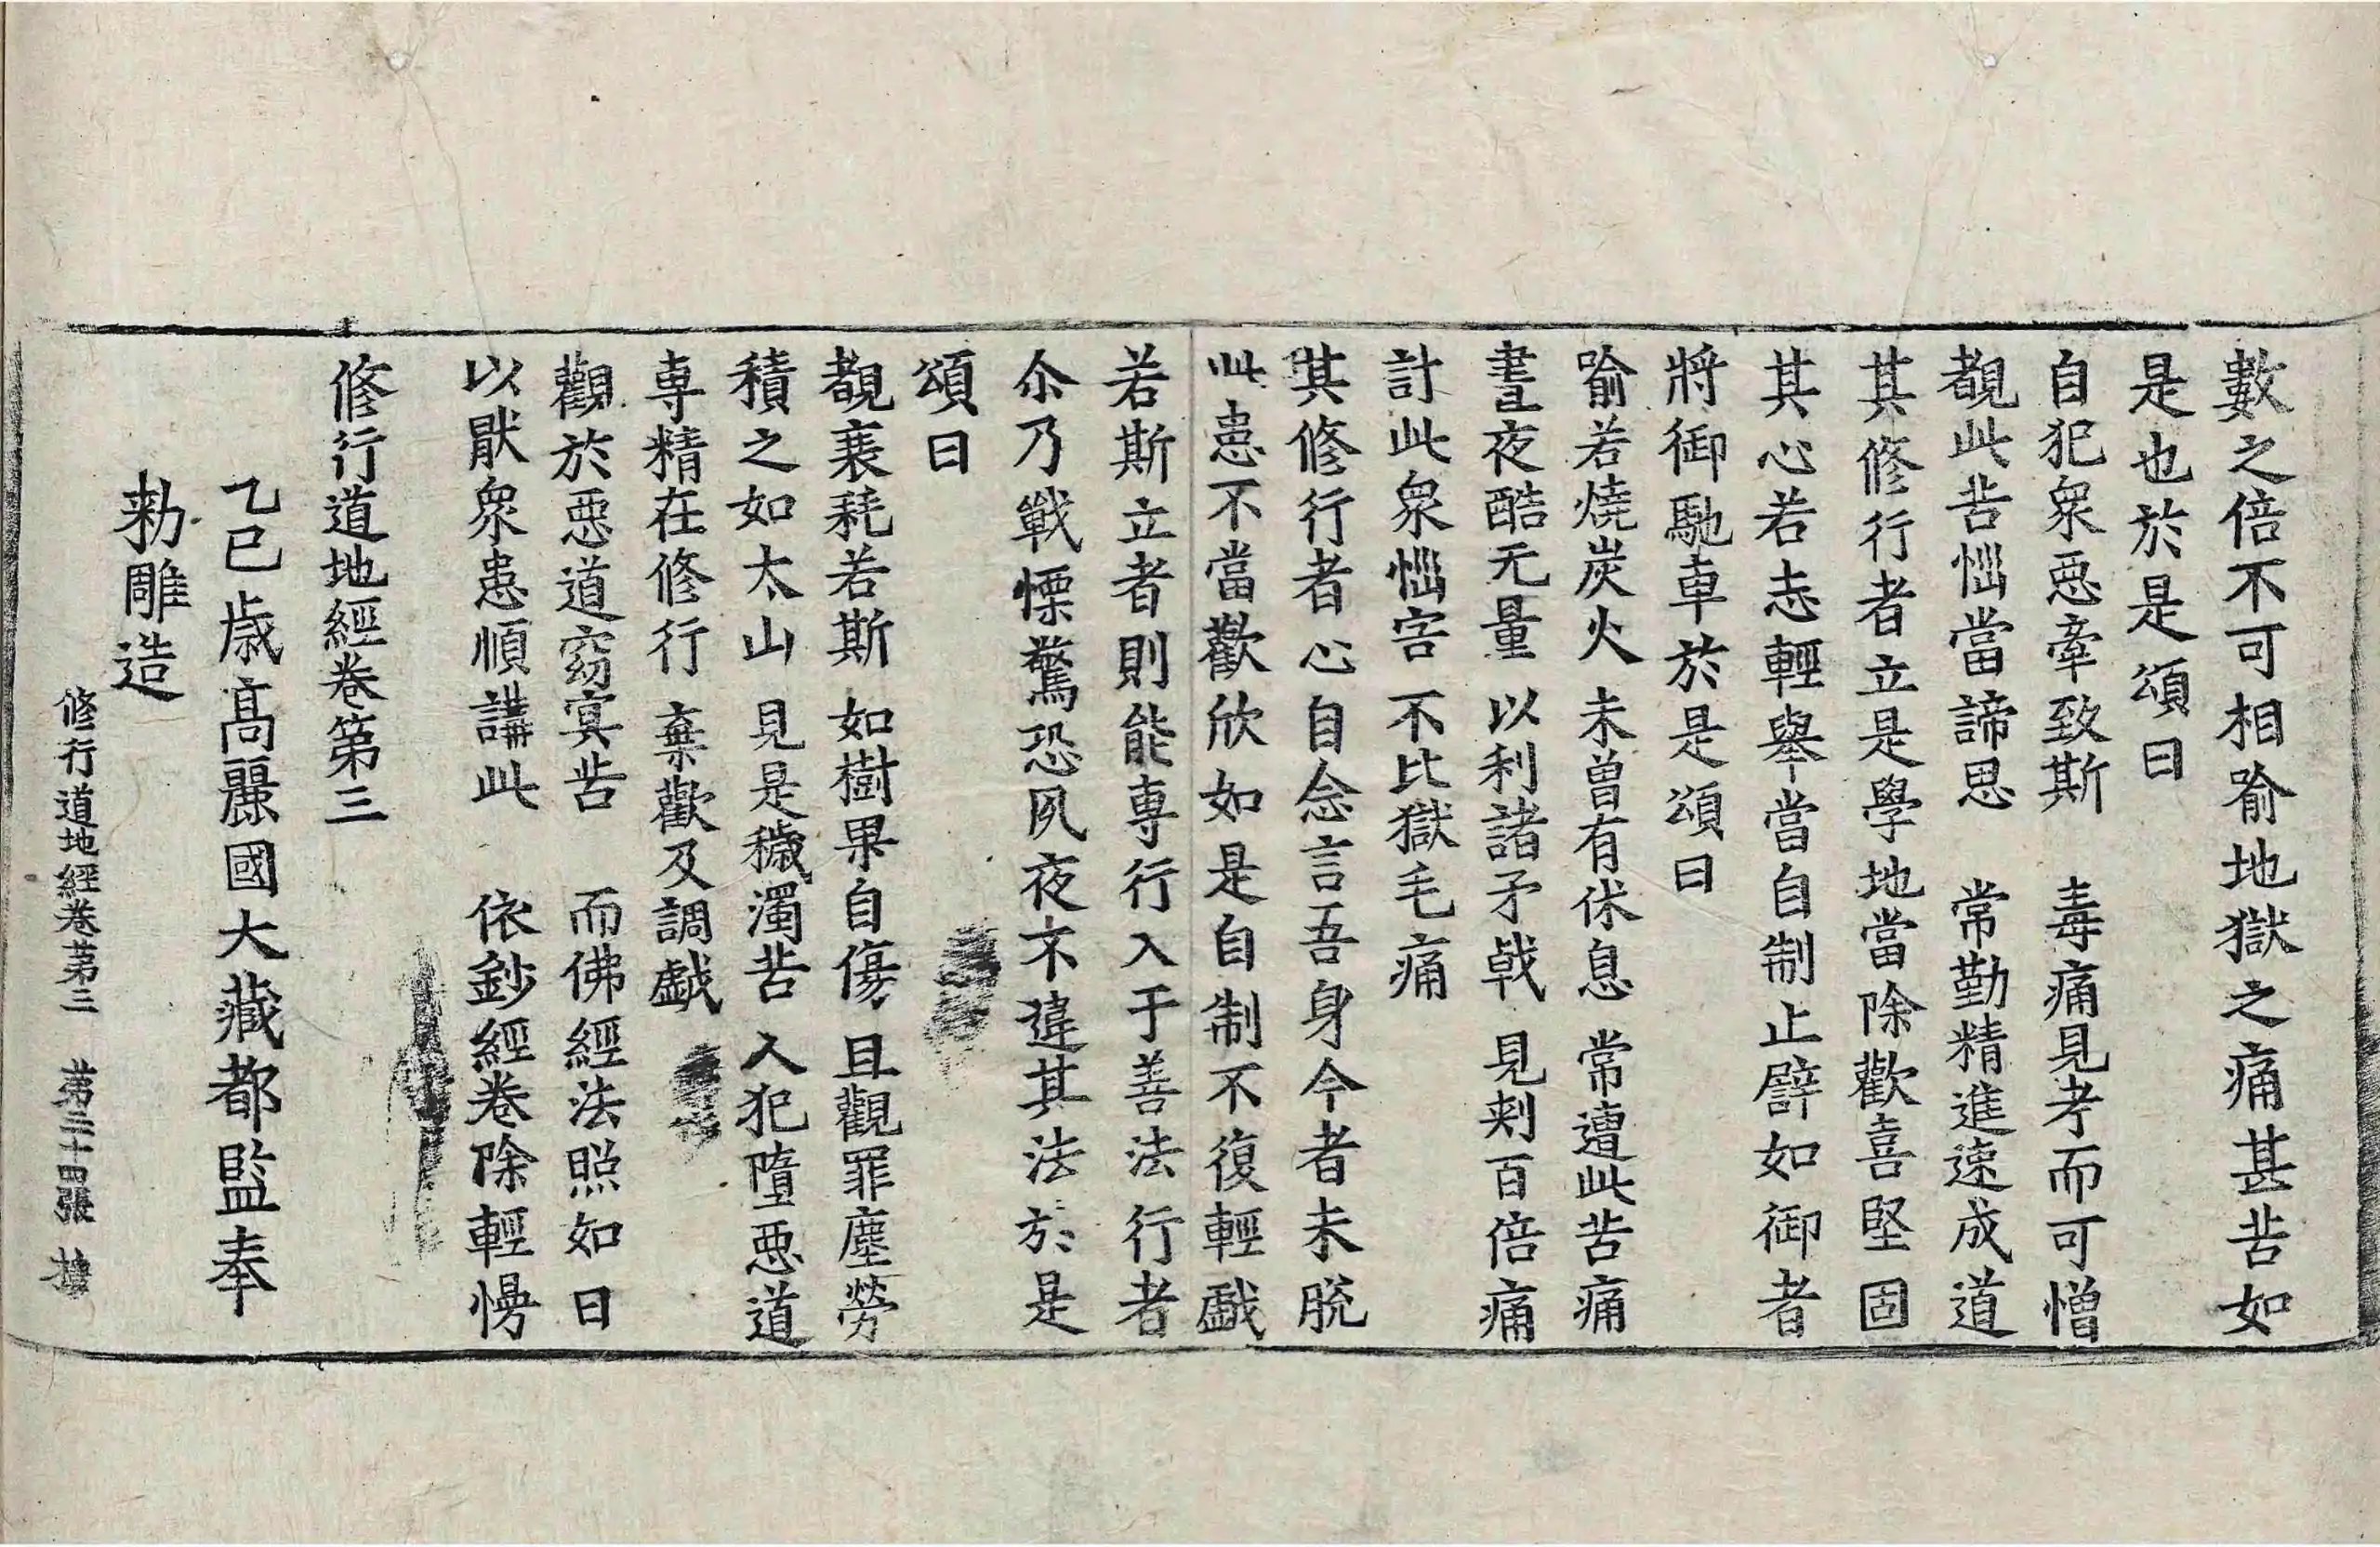 數之倍不可相喻地獄之痛甚苦如
是也於是頌曰
自犯衆惡牽致斯 毒痛見考而可憎
覩此苦惱當諦思 常勤精進速成道
其修行者立是學地當除歡喜堅固
其心若志輕舉當自制止譬如御者
將御馳車於是頌曰
喻若燒炭火 未曾有休息 常遭此苦痛
晝夜酷无量 以利諸矛戟 見刾百倍痛
計此衆惱害 不比獄毛痛
其修行者心自念言吾身今者未脫
此患不當歡欣如是自制不復輕戲
若斯立者則能專行入于善法行者
尒乃戰慄驚恐夙夜不違其法於是
頌曰
覩衰耗若斯 如樹果自傷 且觀罪塵勞
積之如太山 見是穢濁苦 入犯墮惡道
專精在修行 棄歡及調戲
觀於惡道窈冥苦 而佛經法照如日
以猒衆患順講此 依鈔經卷除輕慢
修行道地經卷第三
乙巳歲高麗國大藏都監奉
勑雕造
修行道地經卷第三 第三十四張